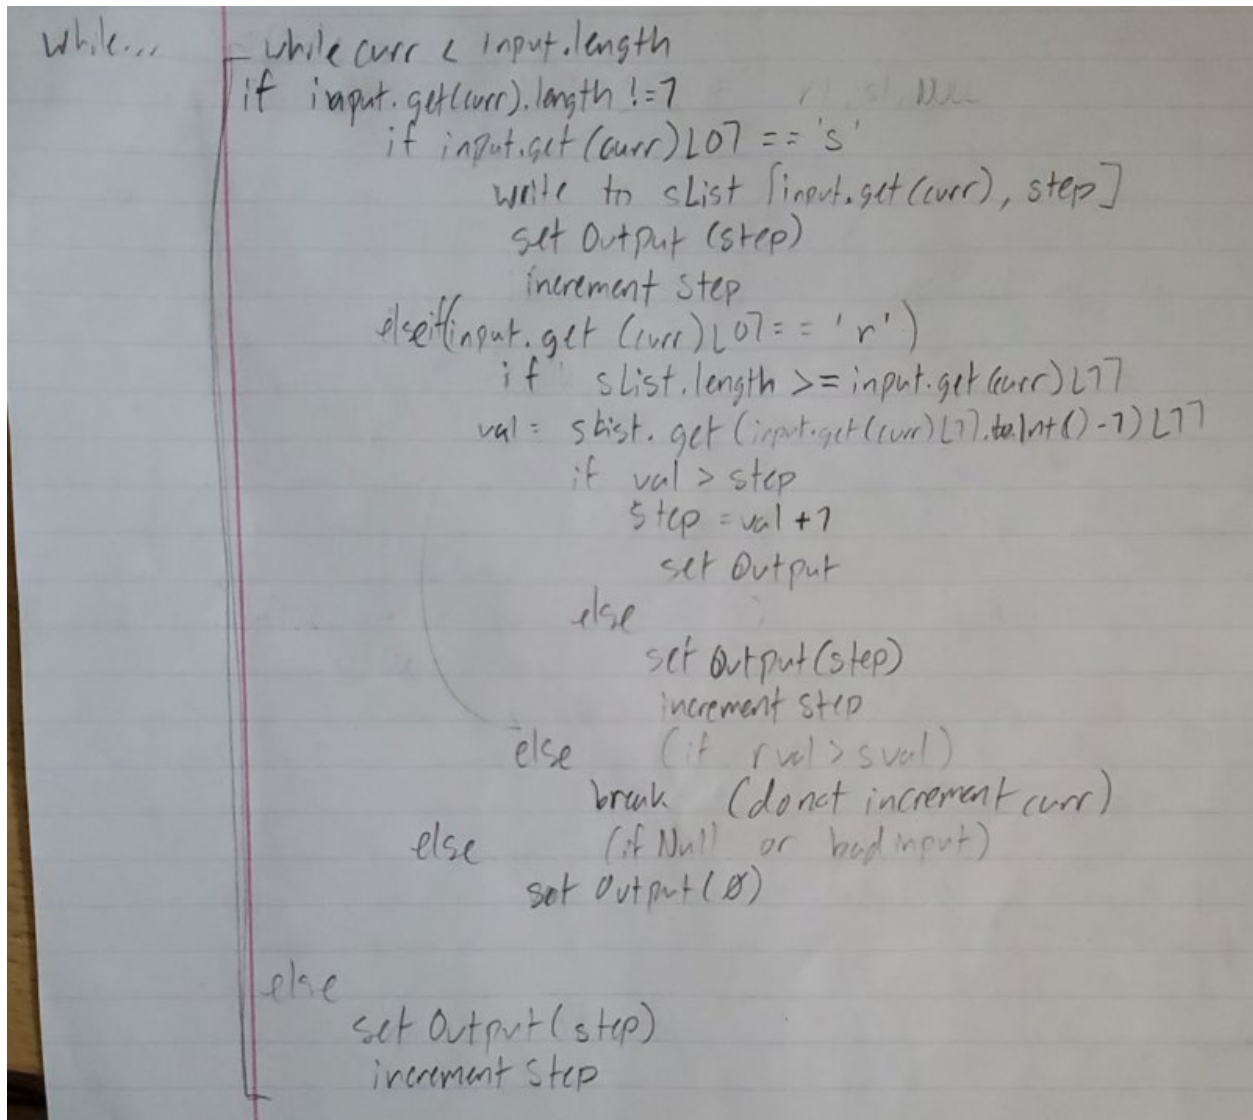 while...
while curr < input.length
if input.get(curr).length != 1
r1, s1, NULL
if input.get(curr)[0] == 's'
write to sList [input.get(curr), step]
set Output (step)
increment step
elseif(input.get (curr)[0] == 'r')
if sList.length >= input.get(curr)[1]
val = sList.get(input.get(curr)[1].to.Int()-1)[1]
if val > step
step = val + 1
set Output
else
set Output(step)
increment step
else (if rval > sval)
break (donct increment curr)
else (if Null or bad input)
set Output (0)
else
set Output (step)
increment Step